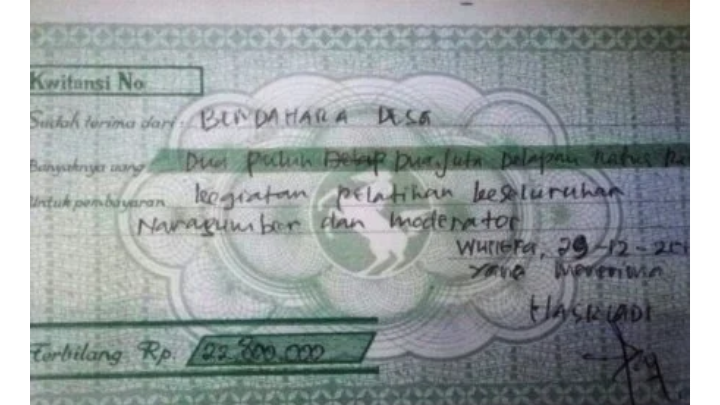 Kwitansi No
Sudah terima dari : BENDAHARA DESA
Banyaknya uang Dua puluh Dua Juta Delapan Ratus
Untuk pembayaran kegiatan pelatihan keseluruhan
Narasumber dan moderator
29-12-
yang Menerima
HASRIADI
Terbilang Rp. 22.800.000